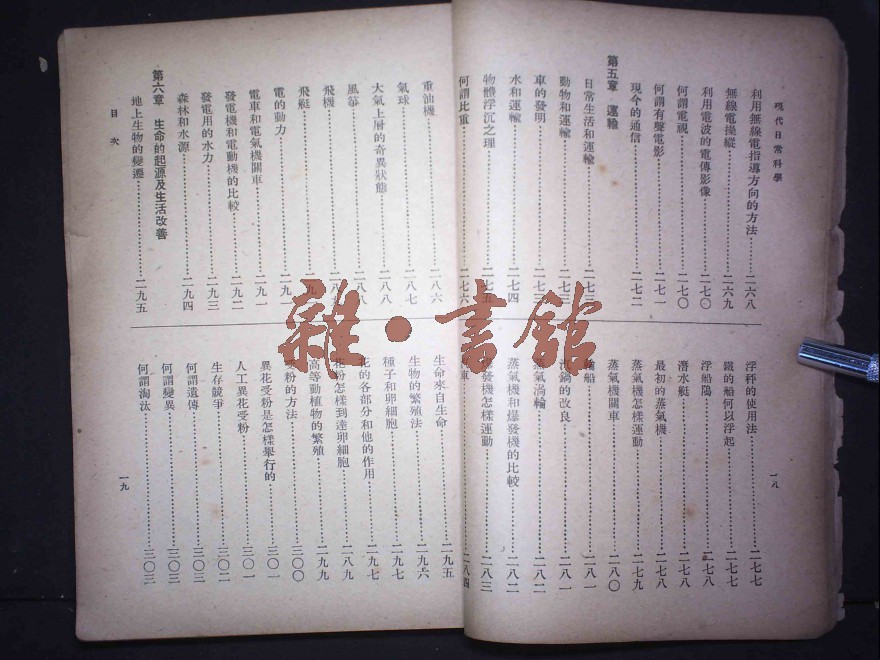 現代日常科學
利用無線電指導方向的方法……二六八
無線電操縱……二六九
利用電波的電傳影像……二七〇
何謂電視……二七〇
何謂有聲電影……二七一
現今的通信……二七二
第五章 運輸
日常生活和運輸……二七三
動物和運輸……二七三
車的發明……二七三
水和運輸……二七四
物體浮沉之理……二七五
何謂比重……二七六
浮秤的使用法……二七七
鐵的船何以浮起……二七七
浮船隝……二七八
潛水艇……二七八
最初的蒸氣機……二七八
蒸氣機怎樣運動……二七九
蒸氣機關車……二八〇
船……二八一
汽鍋的改良……二八一
蒸氣渦輪……二八二
蒸氣機和爆發機的比較……二八二
發機怎樣運動……二八三
車……二八四
一八
重油機……二八六
氣球……二八七
大氣上層的奇異狀態……二八八
風箏……二八八
飛機……二八九
飛艇……二九
電的動力……二九一
電車和電氣機關車……二九一
發電機和電動機的比較……二九二
發電用的水力……二九三
森林和水源……二九四
第六章 生命的起源及生活改善
地上生物的變遷……二九五
目次
生命來自生命……二九五
生物的繁殖法……二九六
種子和卵細胞……二九七
花的各部分和他的作用……二九七
花粉怎樣到達卵細胞……二八九
高等動植物的繁殖……二九九
受粉的方法……三〇〇
異花受粉是怎樣舉行的……三〇一
人工異花受粉……三〇一
生存競爭……三〇二
何謂遺傳……三〇三
何謂變異……三〇三
何謂淘汰……三〇三
一九
雜·書館